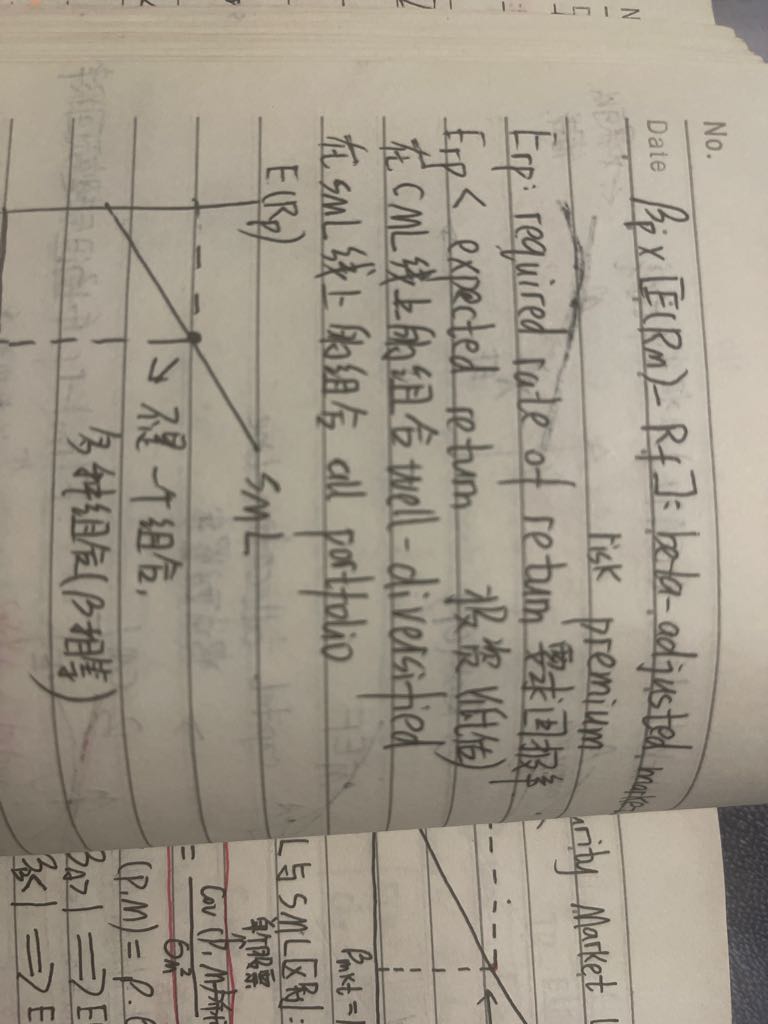 No.
Date
βp × [E(Rm) - Rf]: beta-adjusted market
risk premium
Erp: required rate of return 要求回报率
Erp < expected return 投资(低估)
在CML线上的组合 well-diversified
在SML线上的组合 all portfolio
E(Rp)
SML
→ 不是一个组合,
多种组合(β相等)
rity Market
βmkt = 1
L与SML区别:
单个股票
= Cov(P,M)
σm²
(P,M) = ρ.
>1 ⇒ E
<1 ⇒ E